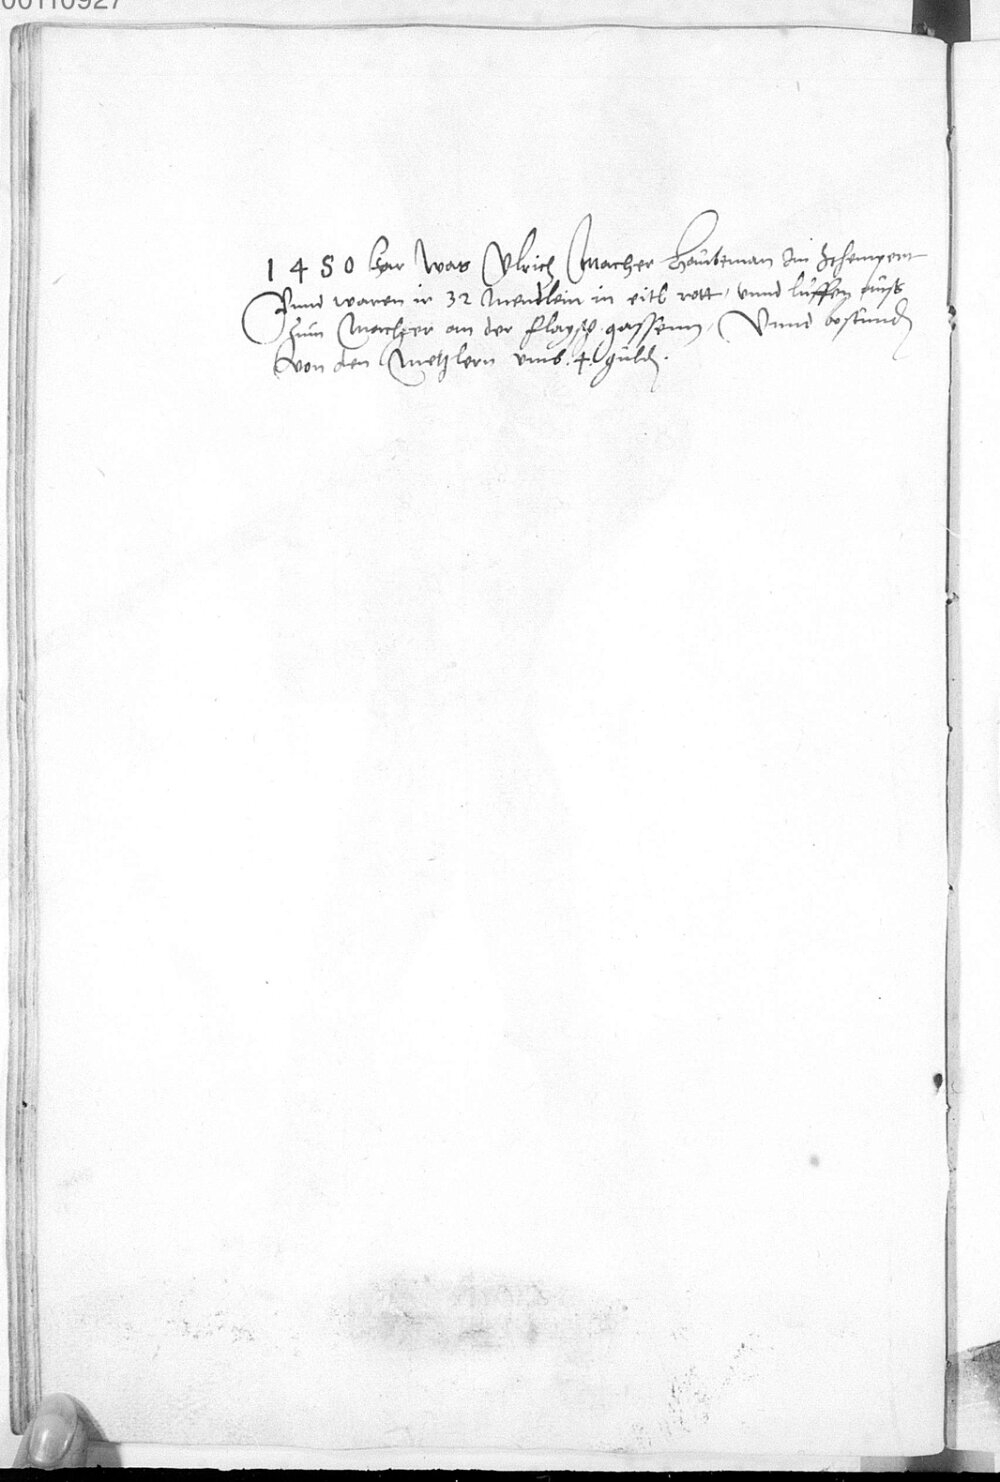 00110927
1450 Jar was Ulrich Macher Haubtman Im Schempert
Unnd waren ir 32 Mendlein in eitl rott, unnd luffen auss
zum Macher an der flaysch gassenn, Unnd bestund
von den Metzlern umb .4. guld.